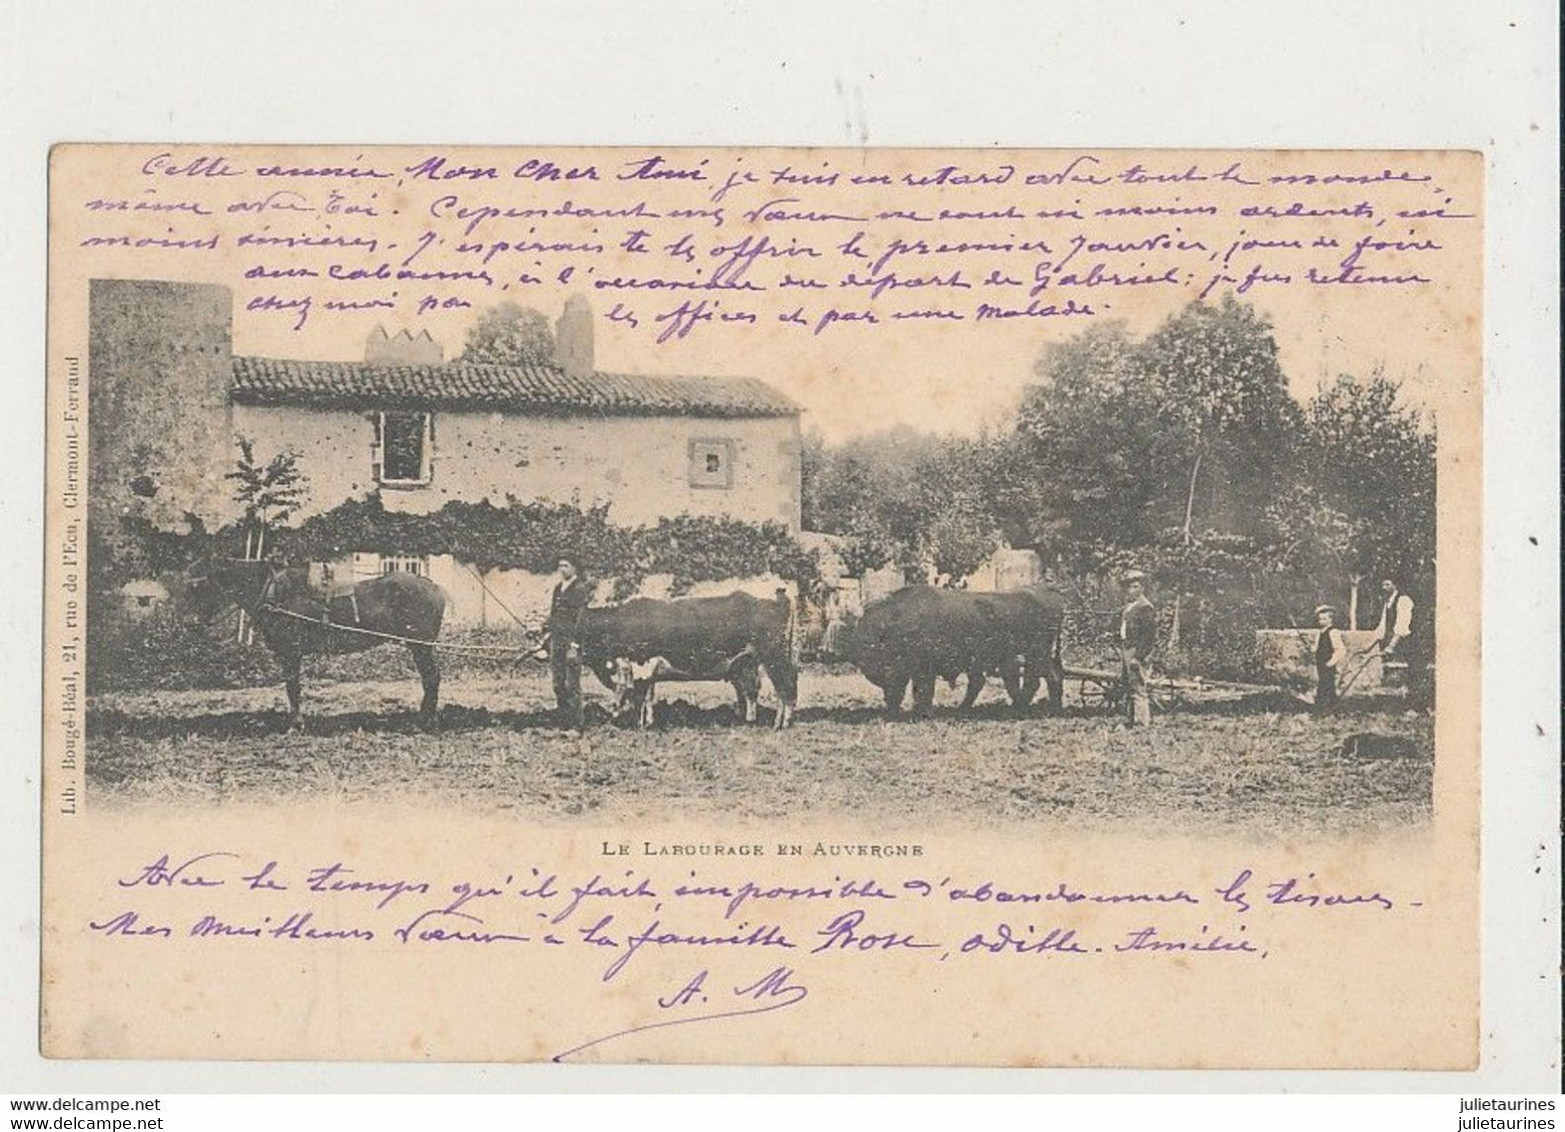 Cette année, Mon Cher Ami, je suis en retard avec tout le monde,
même avec Toi. Cependant mes vœux ne sont ni moins ardents, ni
moins sincères. J'espérais te les offrir le premier Janvier, jour de foire
aux cabannes, à l'occasion du départ de Gabriel; je fus retenu
chez moi par les offices et par une malade.
Lib. Bougé-Béal, 21, rue de l'Ecu, Clermont-Ferrand
LE LABOURAGE EN AUVERGNE
Avec le temps qu'il fait, impossible d'abandonner les tisons -
Mes Meilleurs Vœux à la famille Rose, Odille. Amélie,
A. M
julietaurines
julietaurines
julietaurines
julietaurines